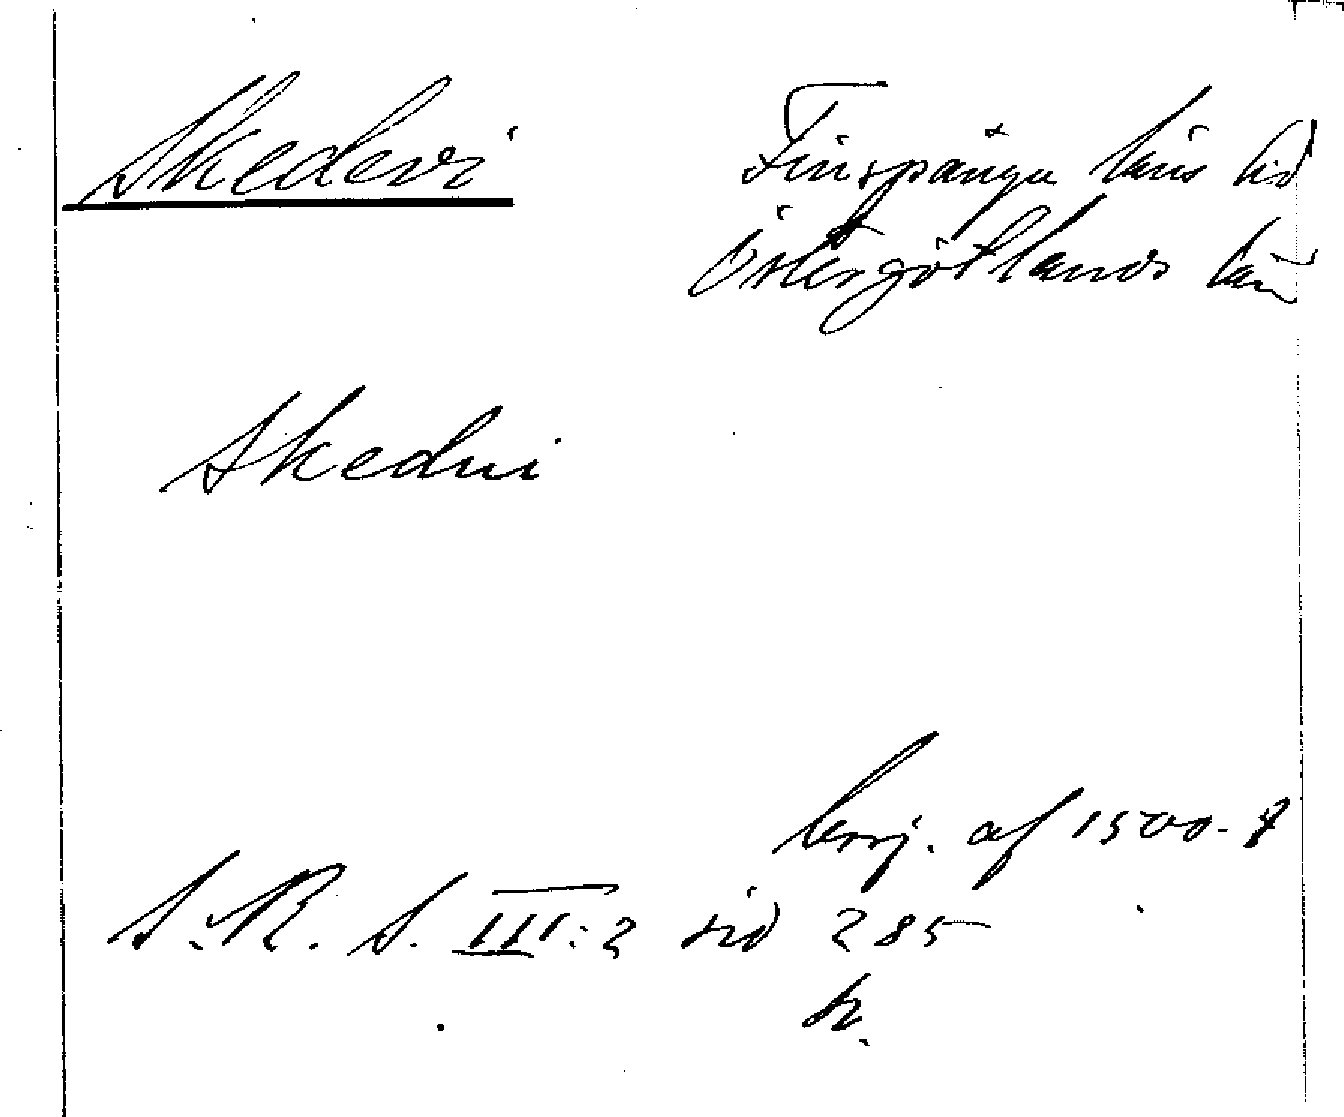 Skedevi
Finspånga läns hd
Östergötlands län
Skedvi
börj. af 1500-t
S. R. S. III:2 sid 285